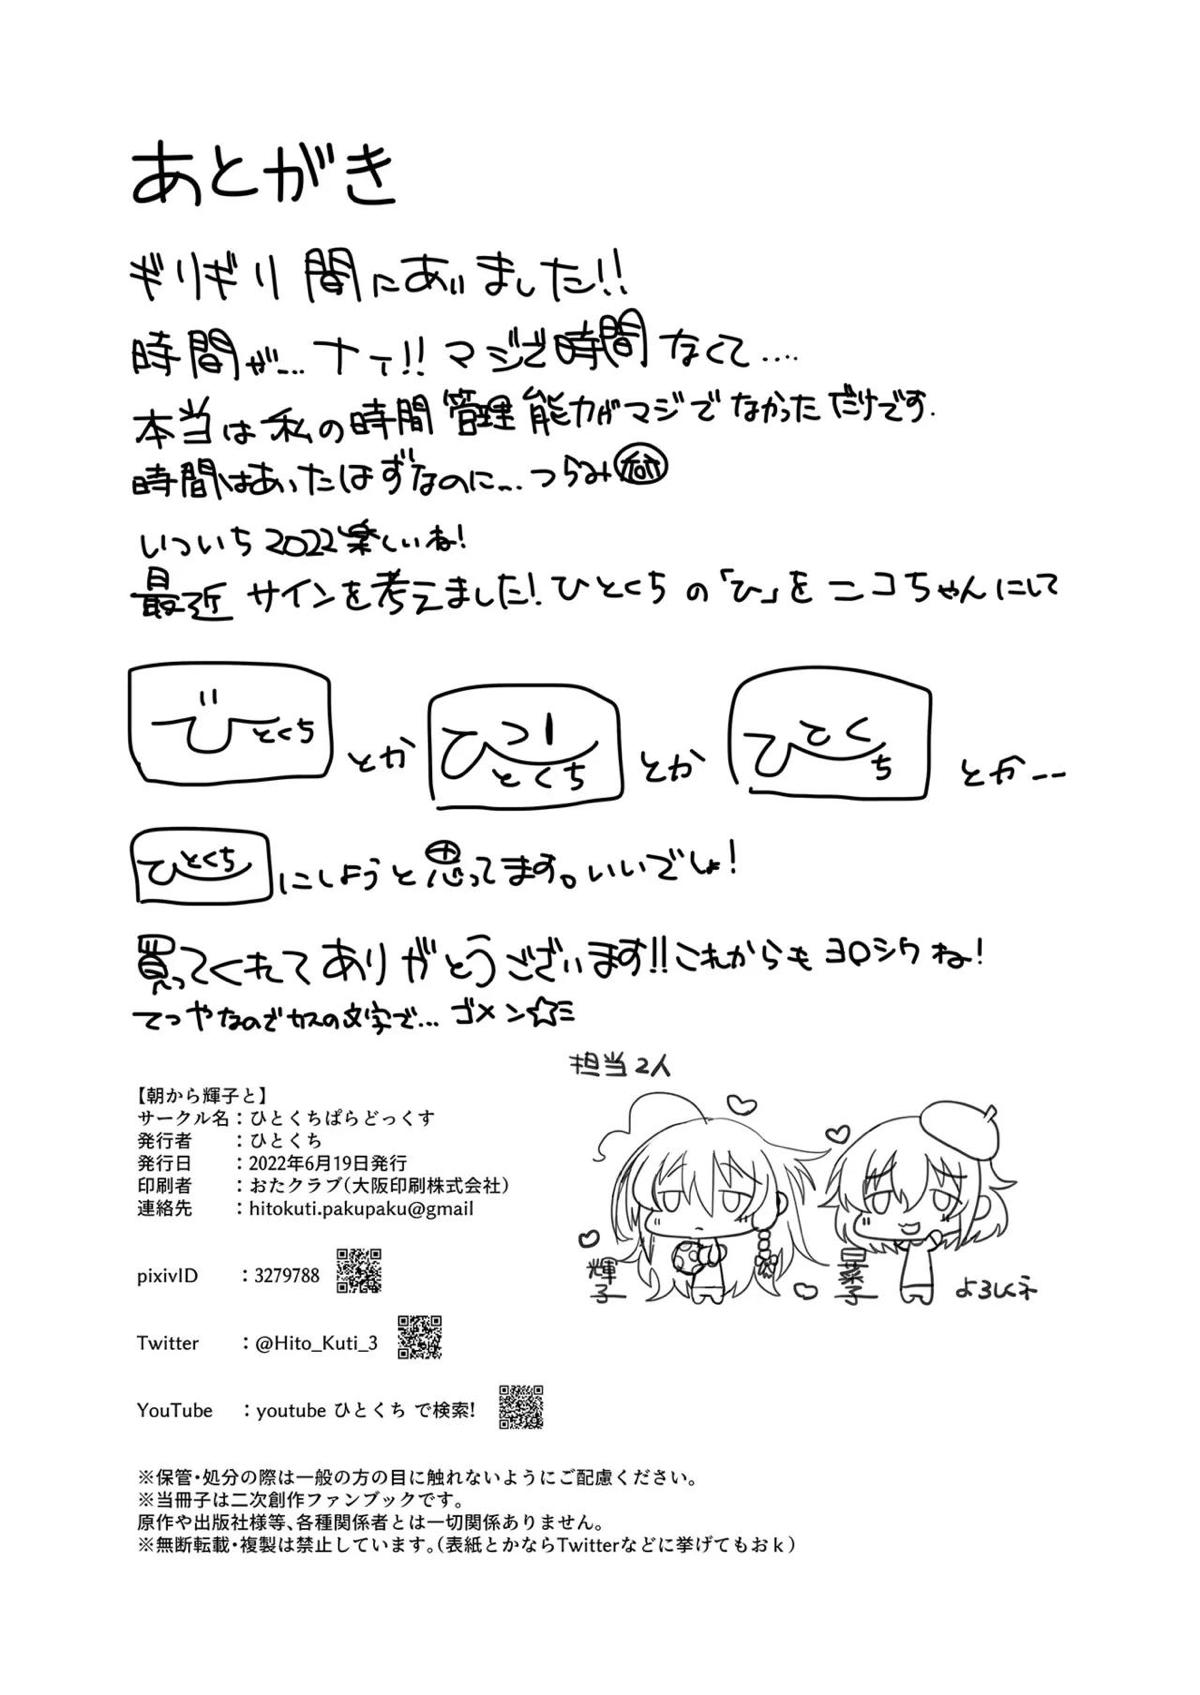 あとがき
ギリギリ間にあいました!!
時間が…ナイ!!マジで時間なくて‥‥
本当は私の時間管理能力がマジでなかっただけです.
時間はあったはずなのに…つらみ
いついち2022楽しいね!
最近サインを考えました!ひとくちの「ひ」をニコちゃんにして
ひとくち とか ひとくち とか ひとくち とか--
ひとくち にしようと思ってます。いいでしょ!
買ってくれてありがとうございます!!これからもヨロシクね!
てつやなのでカスの文字で…ゴメン☆ミ
担当2人
輝子
日菜子
【朝から輝子と】
サークル名：ひとくちぱらどっくす
発行者　　：ひとくち
発行日　　：2022年6月19日発行
印刷者　　：おたクラブ（大阪印刷株式会社）
連絡先　　：hitokuti.pakupaku@gmail
pixivID　　：3279788
Twitter　　：@Hito_Kuti_3
YouTube　：youtube ひとくち で検索!
※保管・処分の際は一般の方の目に触れないようにご配慮ください。
※当冊子は二次創作ファンブックです。
原作や出版社様等、各種関係者とは一切関係ありません。
※無断転載・複製は禁止しています。（表紙とかならTwitterなどに挙げてもおｋ）